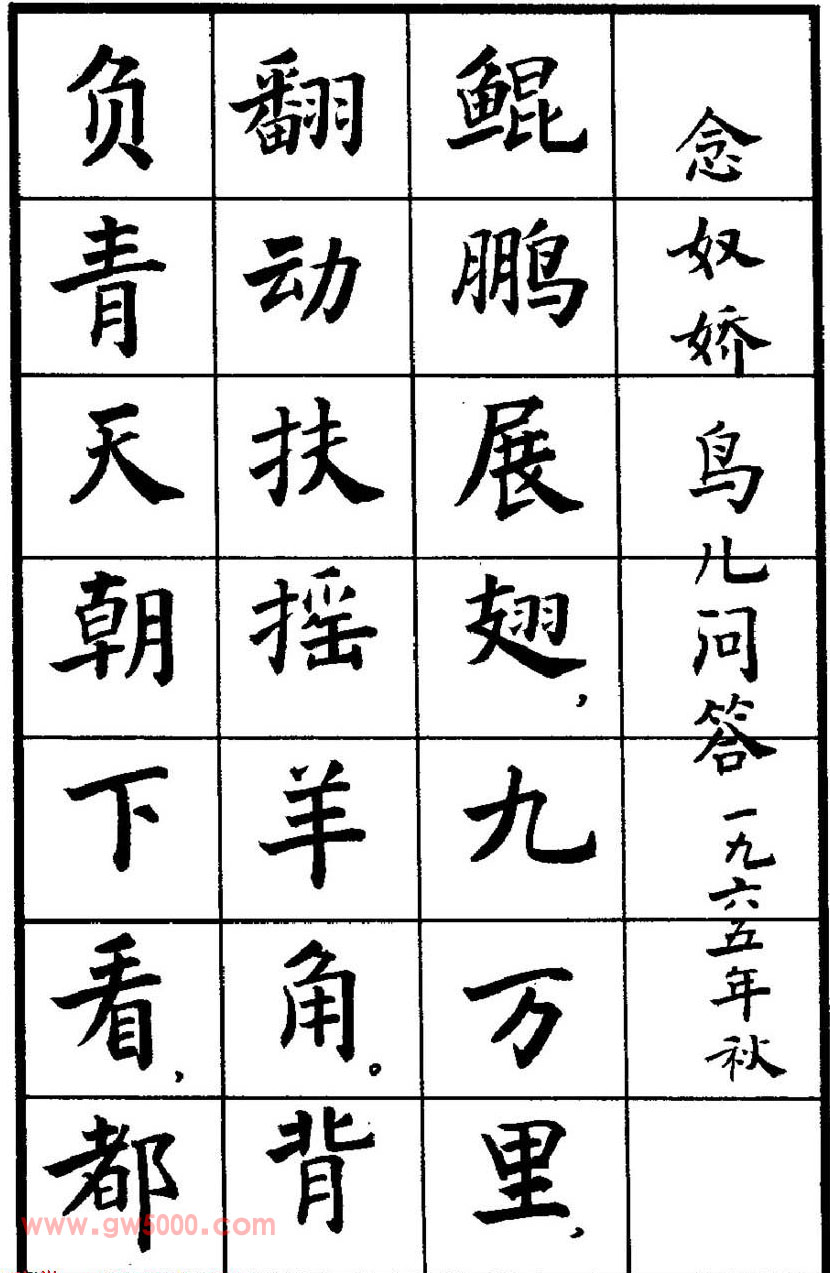 念奴娇 鸟儿问答 一九六五年秋
鲲鹏展翅，九万里，
翻动扶摇羊角。背
负青天朝下看，都
www.gw5000.com